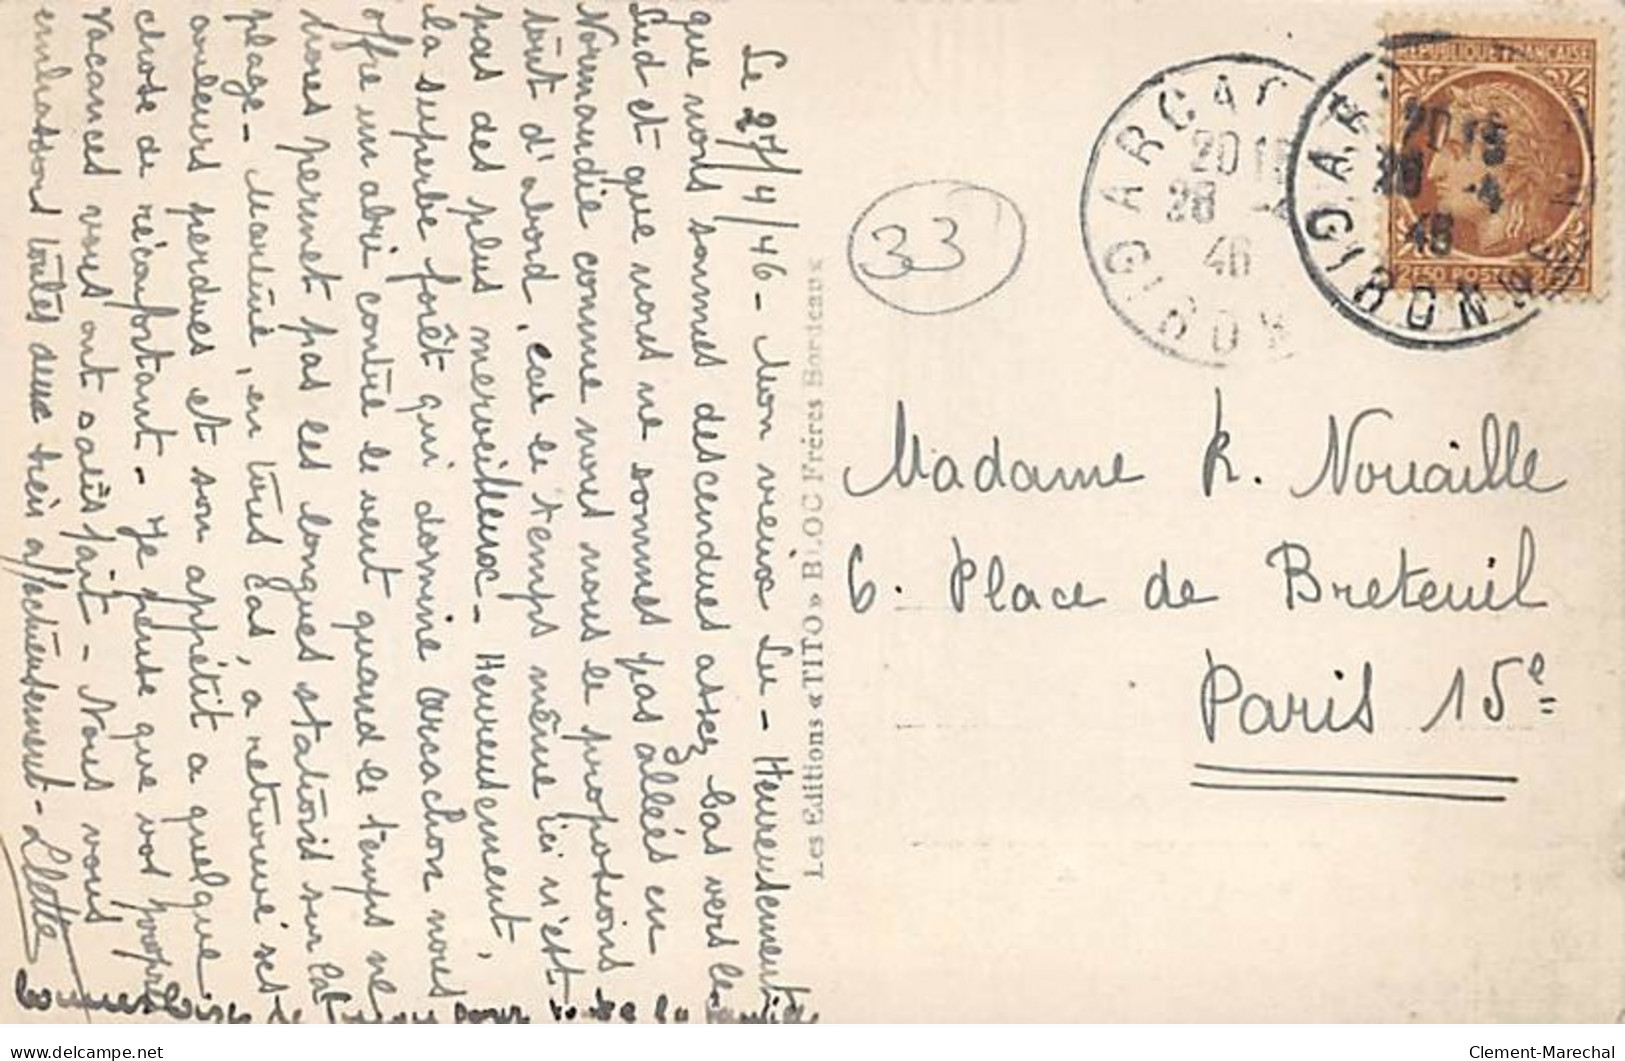 Le 27/4/46 - Mon vieux Lu - Heureusement
que nous sommes descendues assez bas vers le
Sud et que nous ne sommes pas allées en
Normandie comme nous nous le proposions
tout d'abord, car le temps même ici n'est
pas des plus merveilleux - Heureusement,
la superbe forêt qui domine Arcachon nous
offre un abri contre le vent quand le temps ne
nous permet pas les longues stations sur la
plage - Martine, en tous cas, a retrouvé ses
couleurs perdues et son appétit a quelque
chose de réconfortant - Je pense que vos propres
vacances vous ont satisfait - Nous vous
embrassons toutes deux très affectueusement - Lotte
bonnes bises de pour toute la famille
Les Editions «TITO» BLOC Frères Bordeaux
33
ARCAC
20 15
28 -4
46
GIRON
REPUBLIQUE FRANÇAISE
2F50 POSTES
20 15
28 -4
46
GIRONDE
Madame R. Nouaille
6. Place de Breteuil
Paris 15e
Clement-Marechal
www.delcampe.net